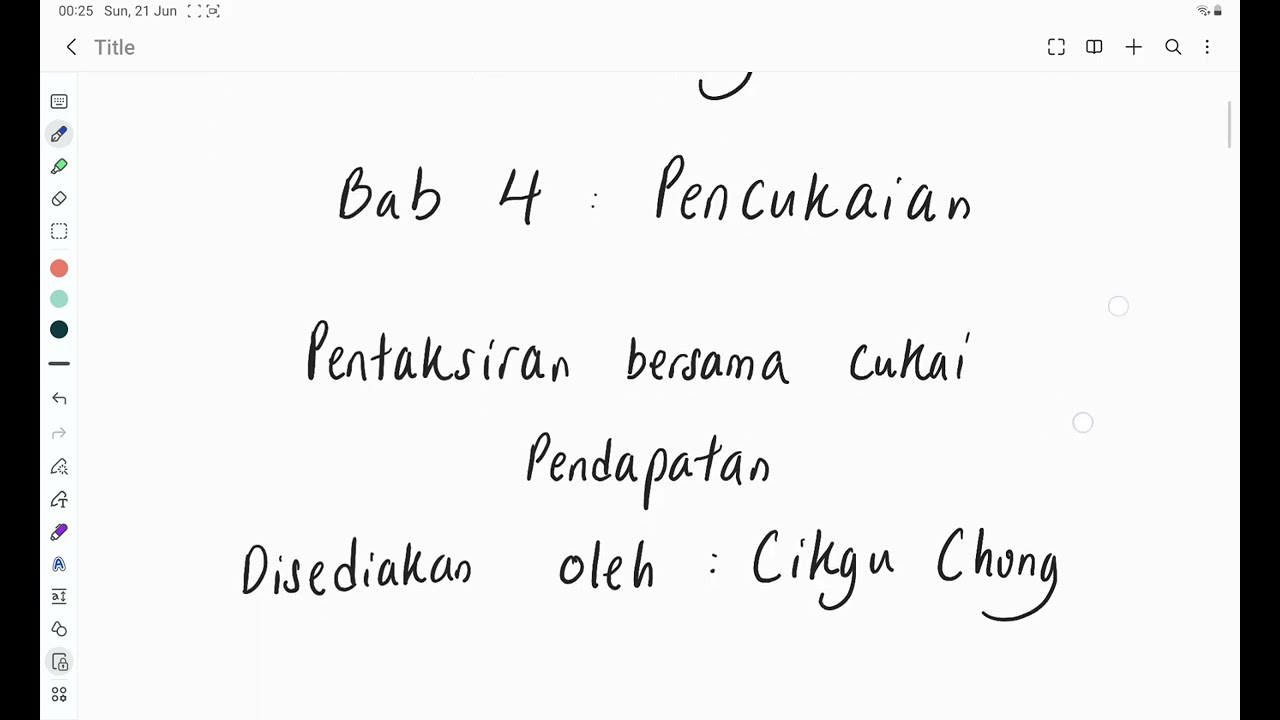 00:25 Sun, 21 Jun
Title
Bab 4 : Pencukaian
Pentaksiran bersama cukai
Pendapatan
Disediakan oleh : Cikgu Chong